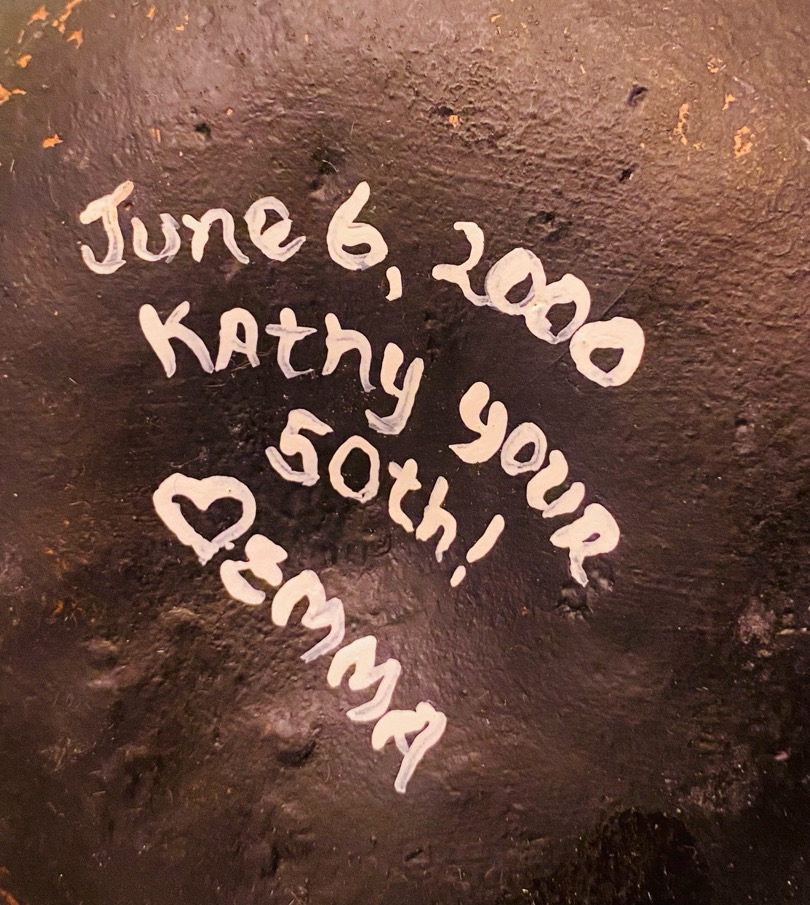 June 6, 2000
KAthy youR
50th!
♡ EMMA